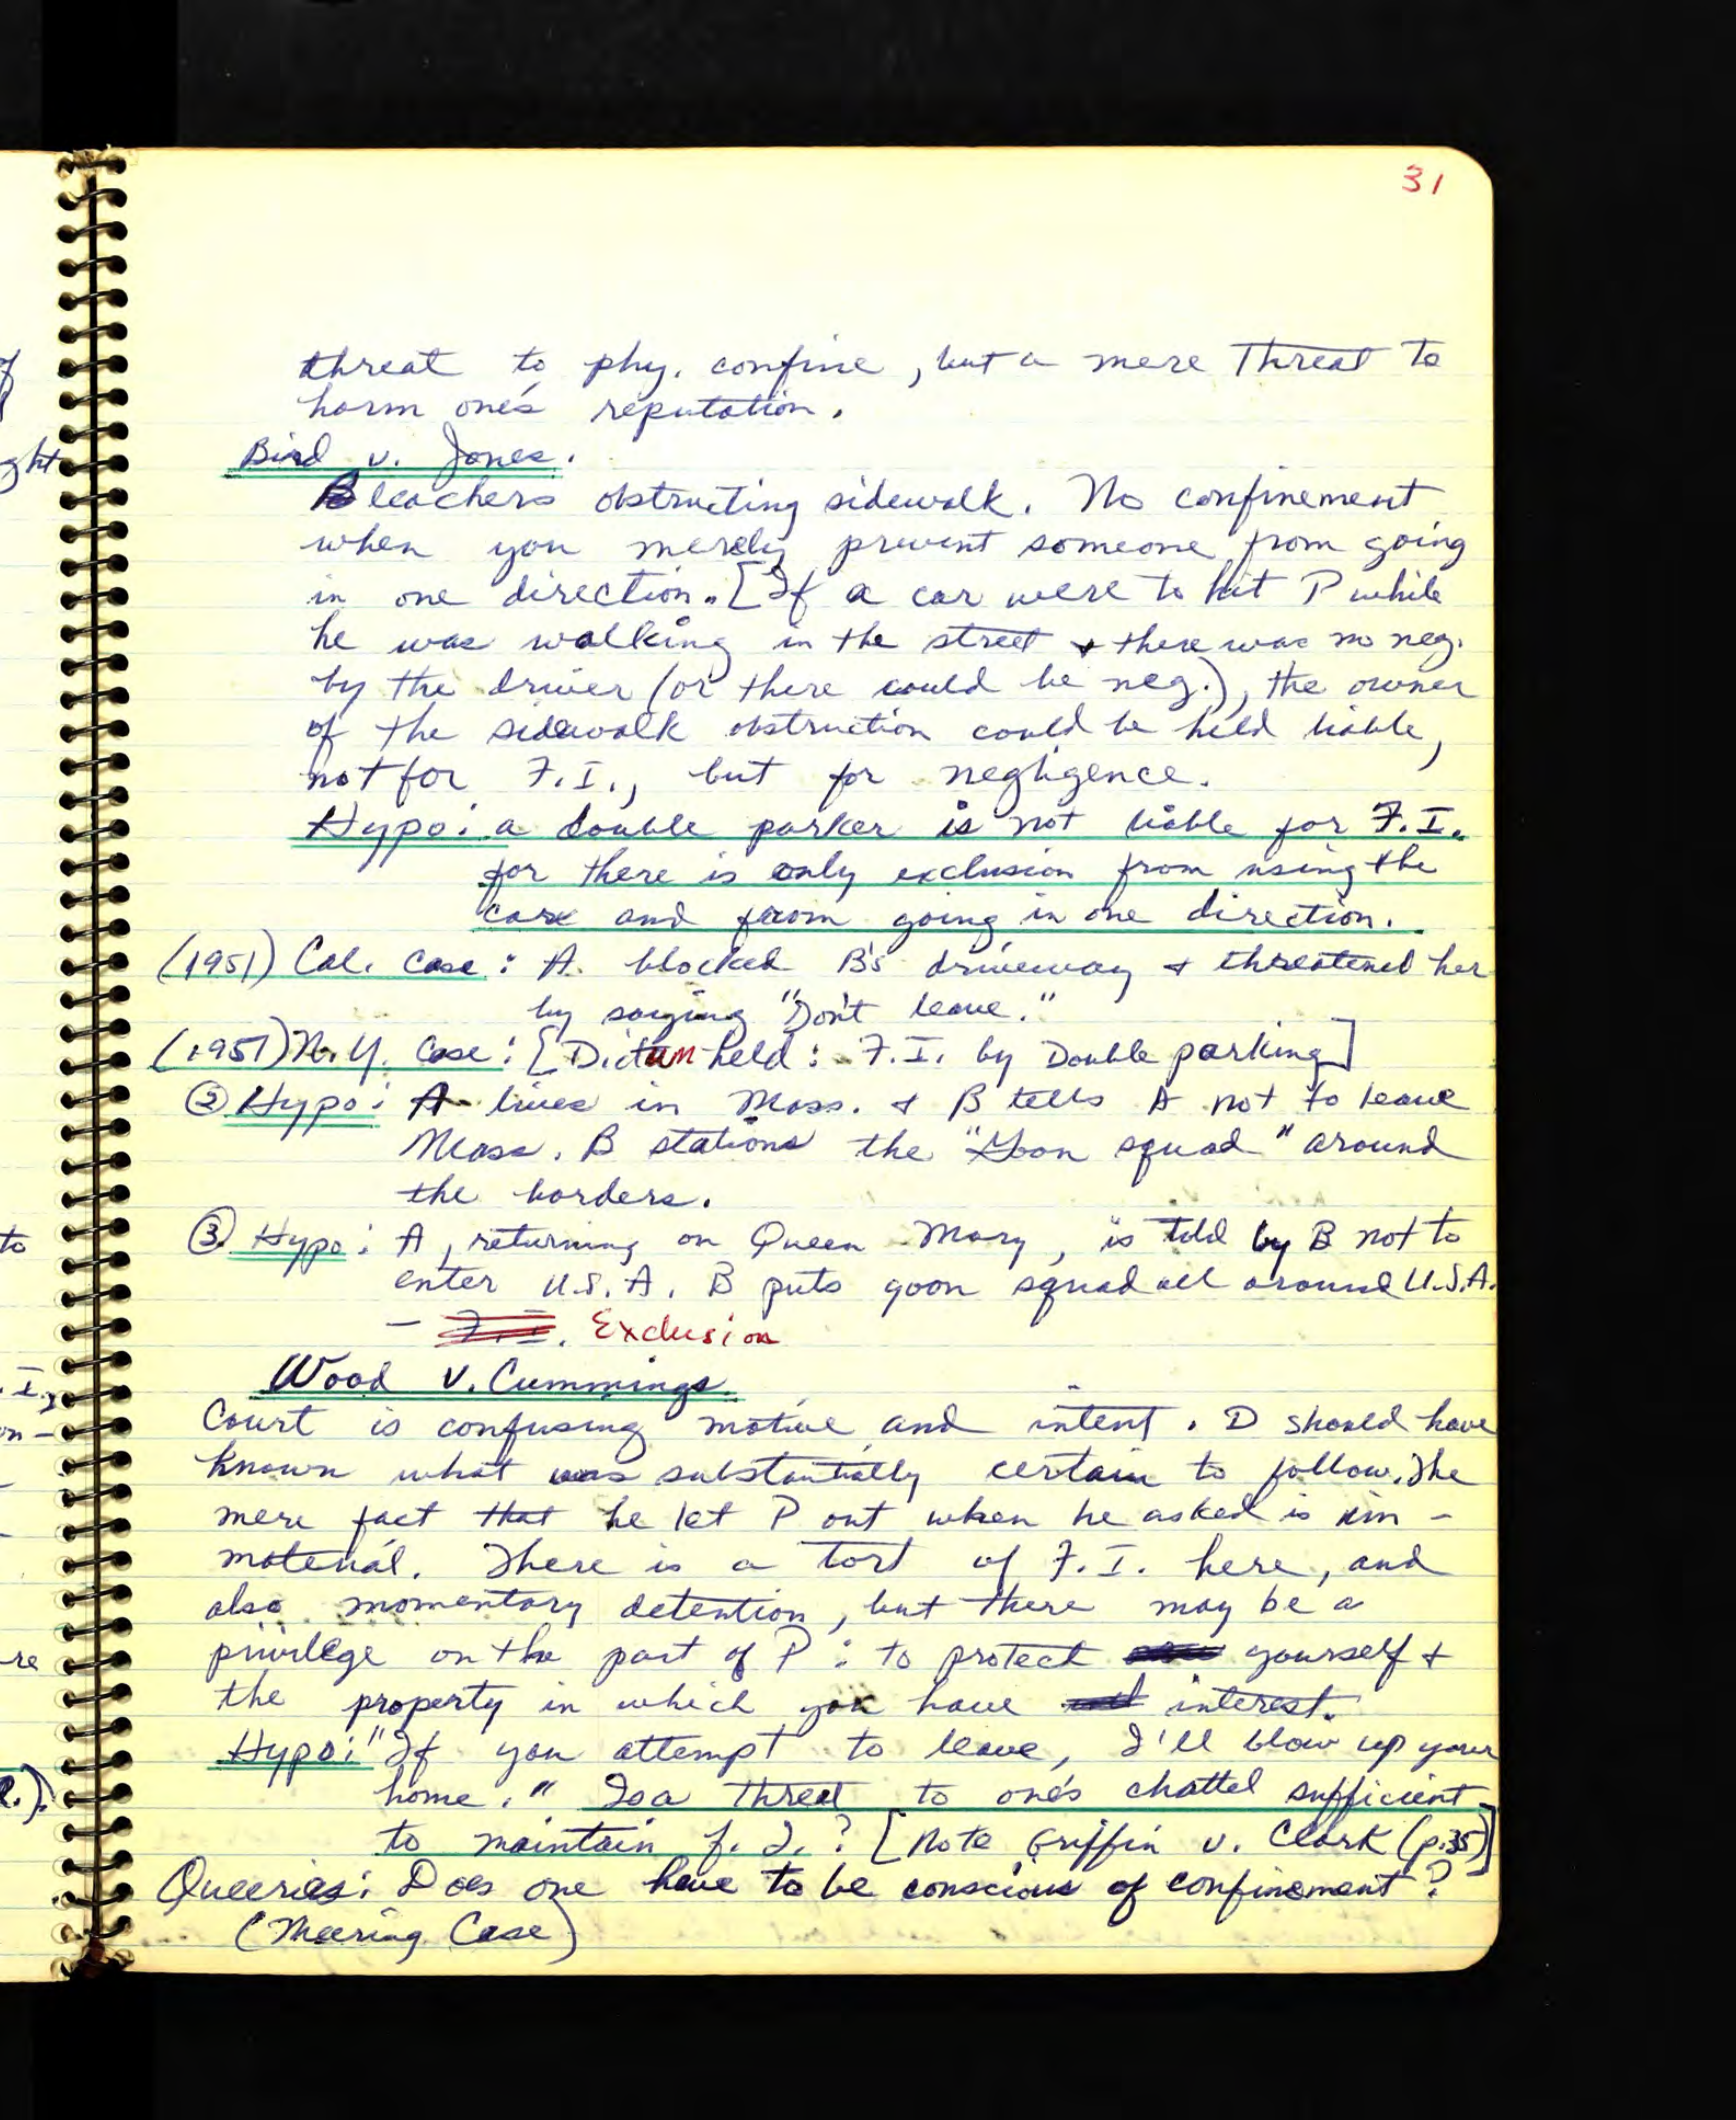 31
threat to phy. confine, but a mere threat to
harm one's reputation.
Bird v. Jones.
Bleachers obstructing sidewalk. No confinement
when you merely prevent someone from going
in one direction. [If a car were to hit P while
he was walking in the street & there was no neg.
by the driver (or there could be neg.), the owner
of the sidewalk obstruction could be held liable,
not for F.I., but for negligence.
Hypo: a double parker is not liable for F.I.
for there is only exclusion from using the
car and from going in one direction.
(1951) Cal. Case: A blocked B's driveway & threatened her
by saying "Don't leave."
(1957) N.Y. Case: [Dictum held: F.I. by Double parking]
② Hypo: A lives in Mass. & B tells A not to leave
Mass. B stations the "Goon squad" around
the borders.
③ Hypo: A, returning on Queen Mary, is told by B not to
enter U.S.A. B puts goon squad all around U.S.A.
- F.I. Exclusion
Wood v. Cummings.
Court is confusing motive and intent. D should have
known what was substantially certain to follow. The
mere fact that he let P out when he asked is im-
material. There is a tort of F.I. here, and
also momentary detention, but there may be a
privilege on the part of P: to protect yourself &
the property in which you have interest.
Hypo: "If you attempt to leave, I'll blow up your
home." Is a threat to one's chattel sufficient
to maintain f.I.? [Note Griffin v. Clark (p.35)]
Queeries: Does one have to be conscious of confinement?
(Meering Case)